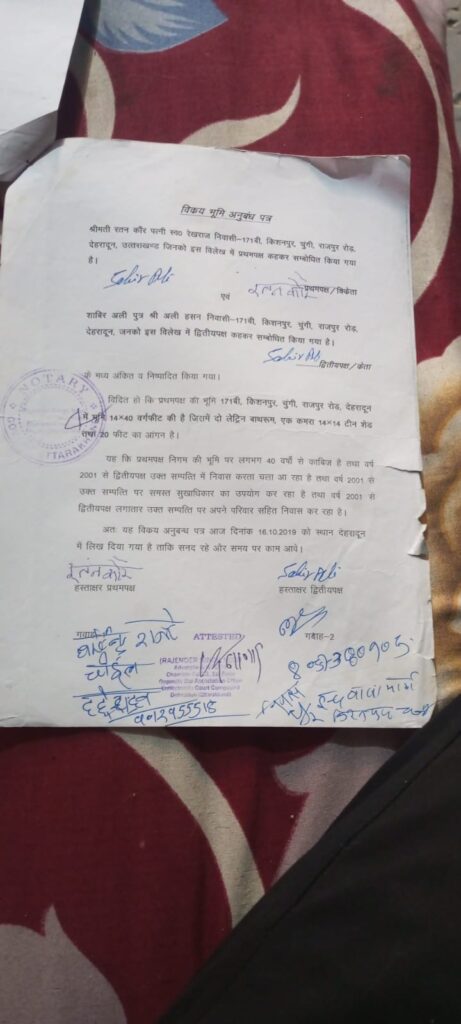 विक्रय भूमि अनुबंध पत्र
श्रीमती रतन कौर पत्नी स्व0 देखराज निवासी–171बी, किशनपुर, चुंगी, राजपुर रोड,
देहरादून, उत्तराखण्ड जिनको इस विलेख में प्रथमपक्ष कहकर सम्बोधित किया गया
है।
Sabir Ali
रतन कौर प्रथमपक्ष/विक्रेता
एवं
शाबिर अली पुत्र श्री अली हसन निवासी–171बी, किशनपुर, चुंगी, राजपुर रोड,
देहरादून, जनको इस विलेख में द्वितीयपक्ष कहकर सम्बोधित किया गया है।
Sabir Ali द्वितीयपक्ष/केता
के मध्य अंकित व निष्पादित किया गया।
विदित हो कि प्रथमपक्ष की भूमि 171बी, किशनपुर, चुंगी, राजपुर रोड, देहरादून
में भूमि 14×40 वर्गफीट की है जिसमें दो लेट्रिन बाथरूम, एक कमरा 14×14 टीन शेड
तथा 20 फीट का आंगन है।
NOTARY
UTTARAKHAND
यह कि प्रथमपक्ष निगम की भूमि पर लगभग 40 वर्षो से काबिज है तथा वर्ष
2001 से द्वितीयपक्ष उक्त सम्पत्ति में निवास करता चला आ रहा है तथा वर्ष 2001 से
उक्त सम्पत्ति पर समस्त सुखाधिकार का उपयोग कर रहा है तथा वर्ष 2001 से
द्वितीयपक्ष लगातार उक्त सम्पत्ति पर अपने परिवार सहित निवास कर रहा है।
अतः यह विक्रय अनुबन्ध पत्र आज दिनांक 16.10.2019 को स्थान देहरादून
में लिख दिया गया है ताकि सनद रहे ओर समय पर काम आवे।
रतन कौर Sabir Ali
हस्ताक्षर प्रथमपक्ष हस्ताक्षर द्वितीयपक्ष
ATTESTED गवाह-2
(RAJENDER
Advocate
Court Compound
Dehradun (Uttarakhand)